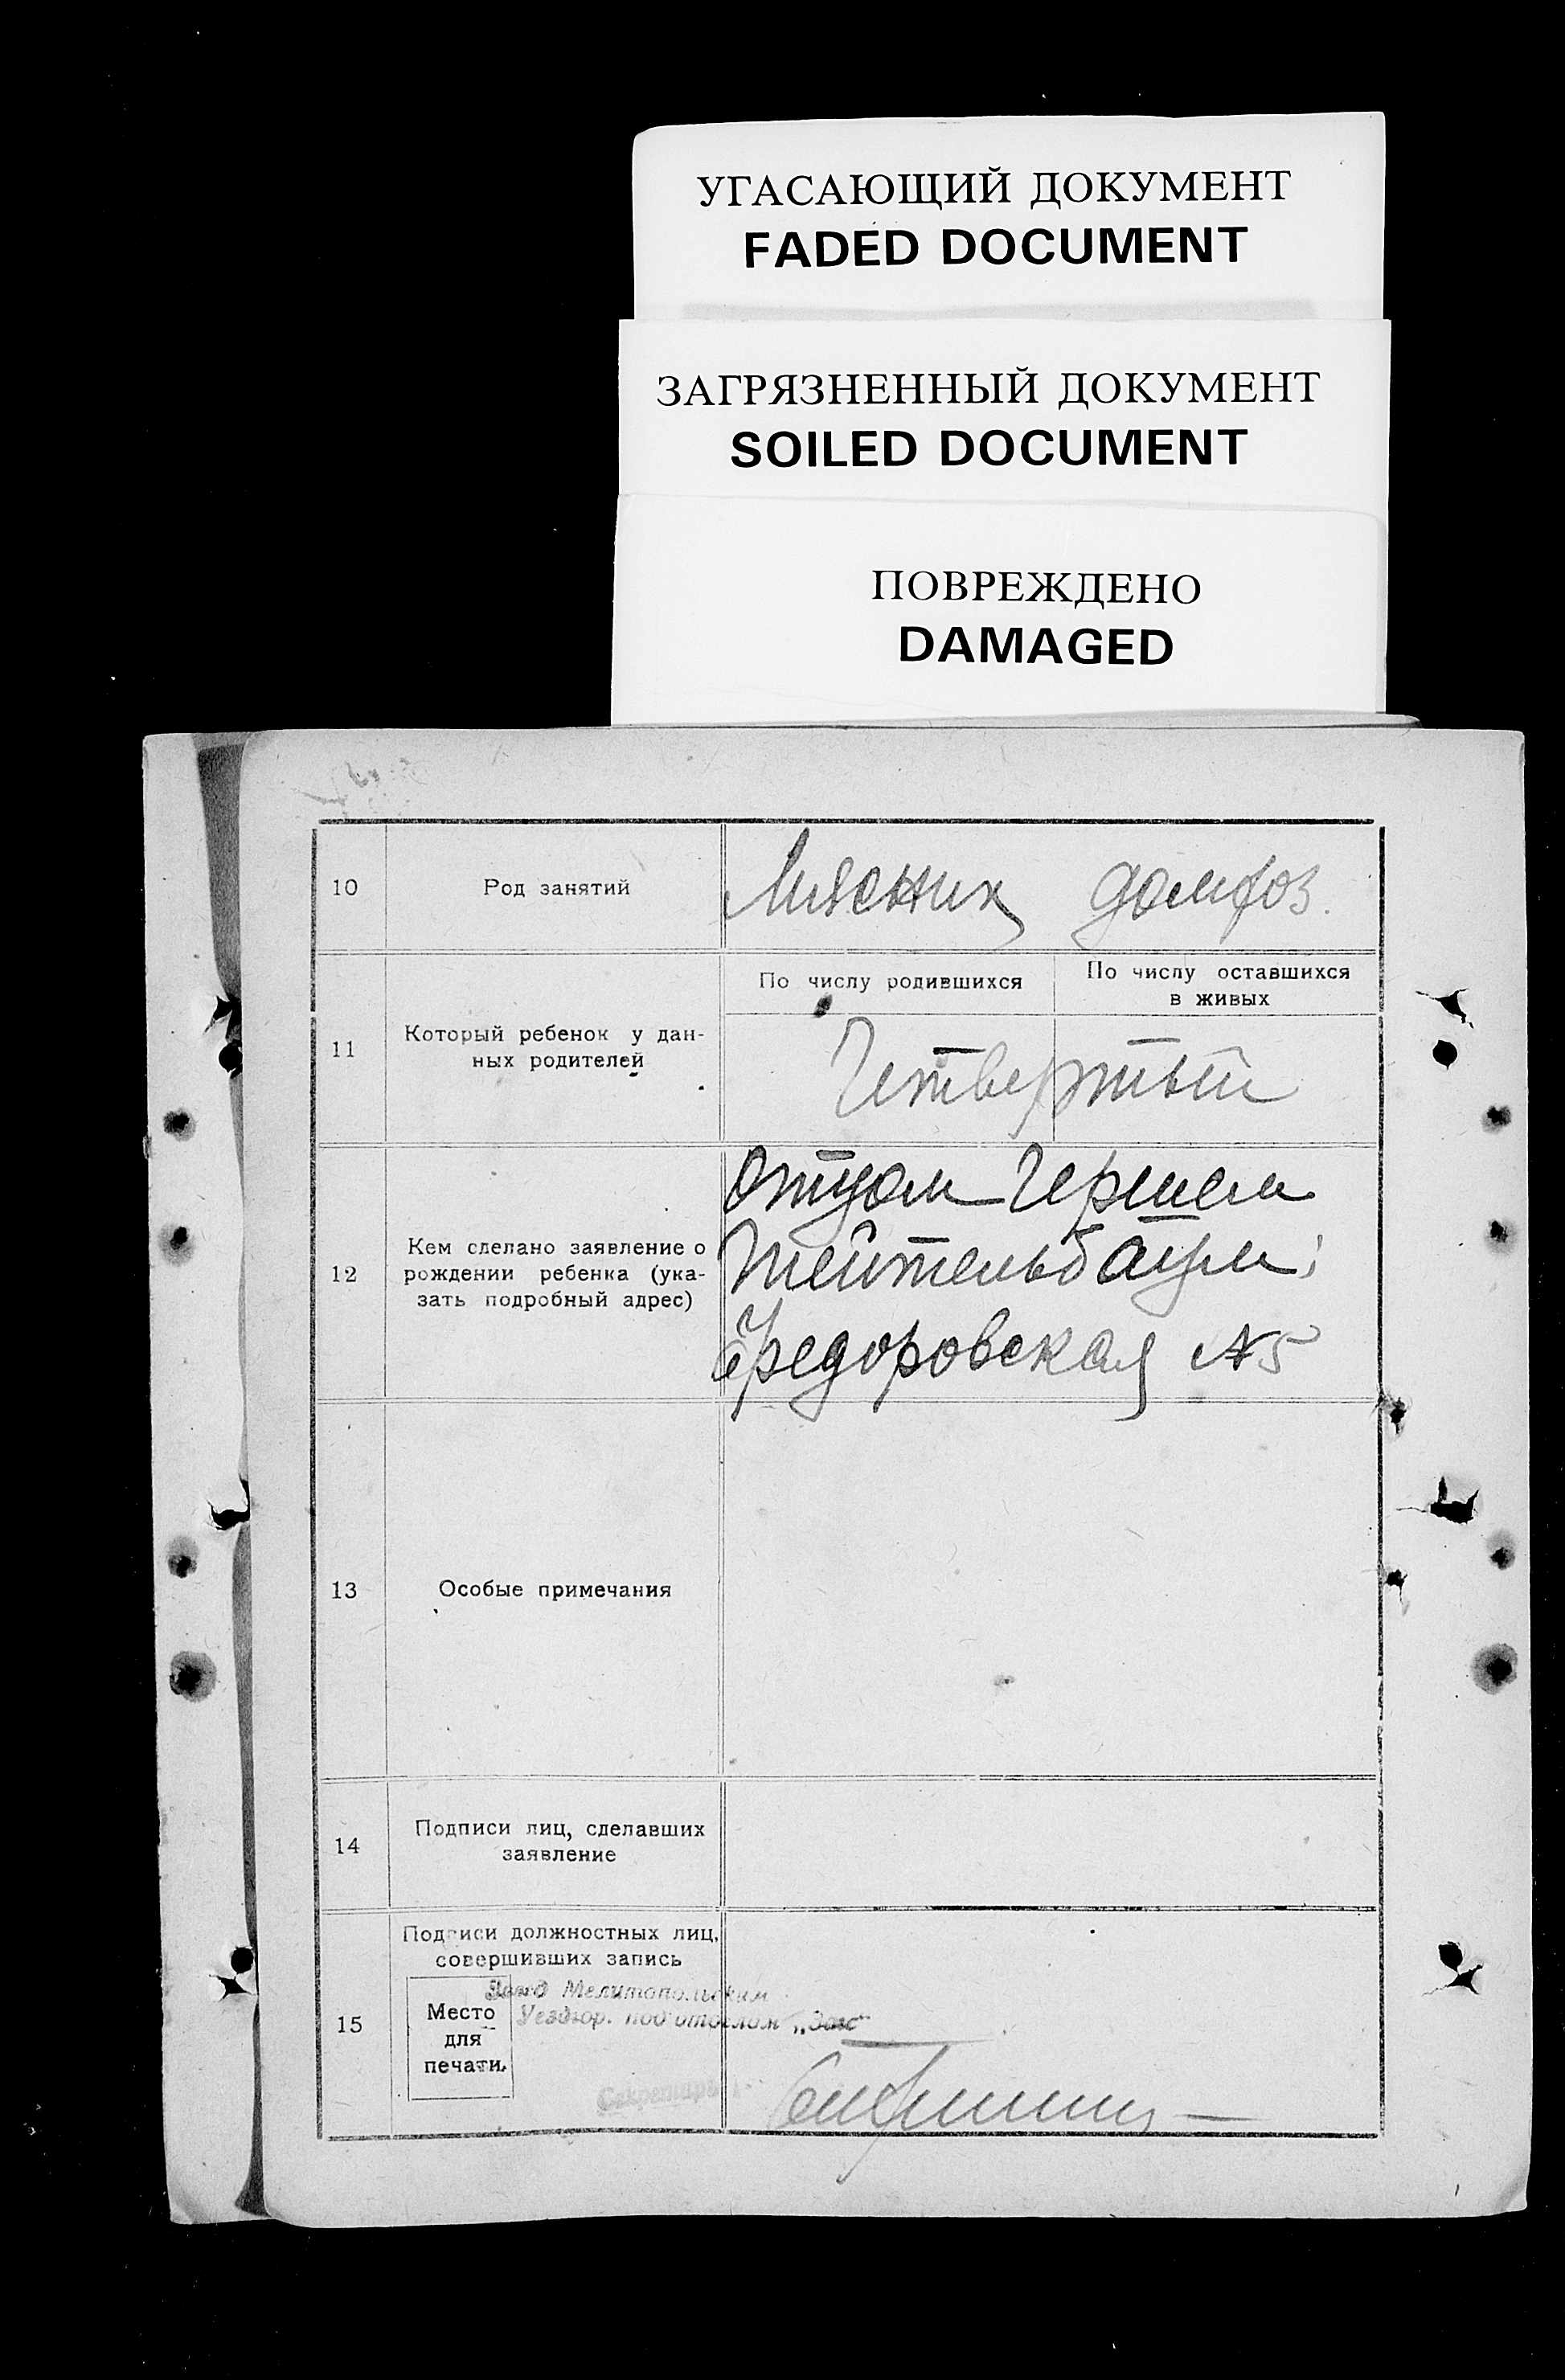 УГАСАЮЩИЙ ДОКУМЕНТ
FADED DOCUMENT
ЗАГРЯЗНЕННЫЙ ДОКУМЕНТ
SOILED DOCUMENT
ПОВРЕЖДЕНО
DAMAGED
10
Род занятий
Мясник
домхоз.
11
Который ребенок у дан-
ных родителей
По числу родившихся
По числу оставшихся
в живых
Четвертый
12
Кем сделано заявление о
рождении ребенка (ука-
зать подробный адрес)
Отцом Гершем
Тейтельбаум;
Федоровская №5
13
Особые примечания
14
Подписи лиц, сделавших
заявление
15
Подписи должностных лиц,
совершивших запись
Место
для
печати.
Мелитопольским
Уездгор. подотделом „Загс“
Секретарь